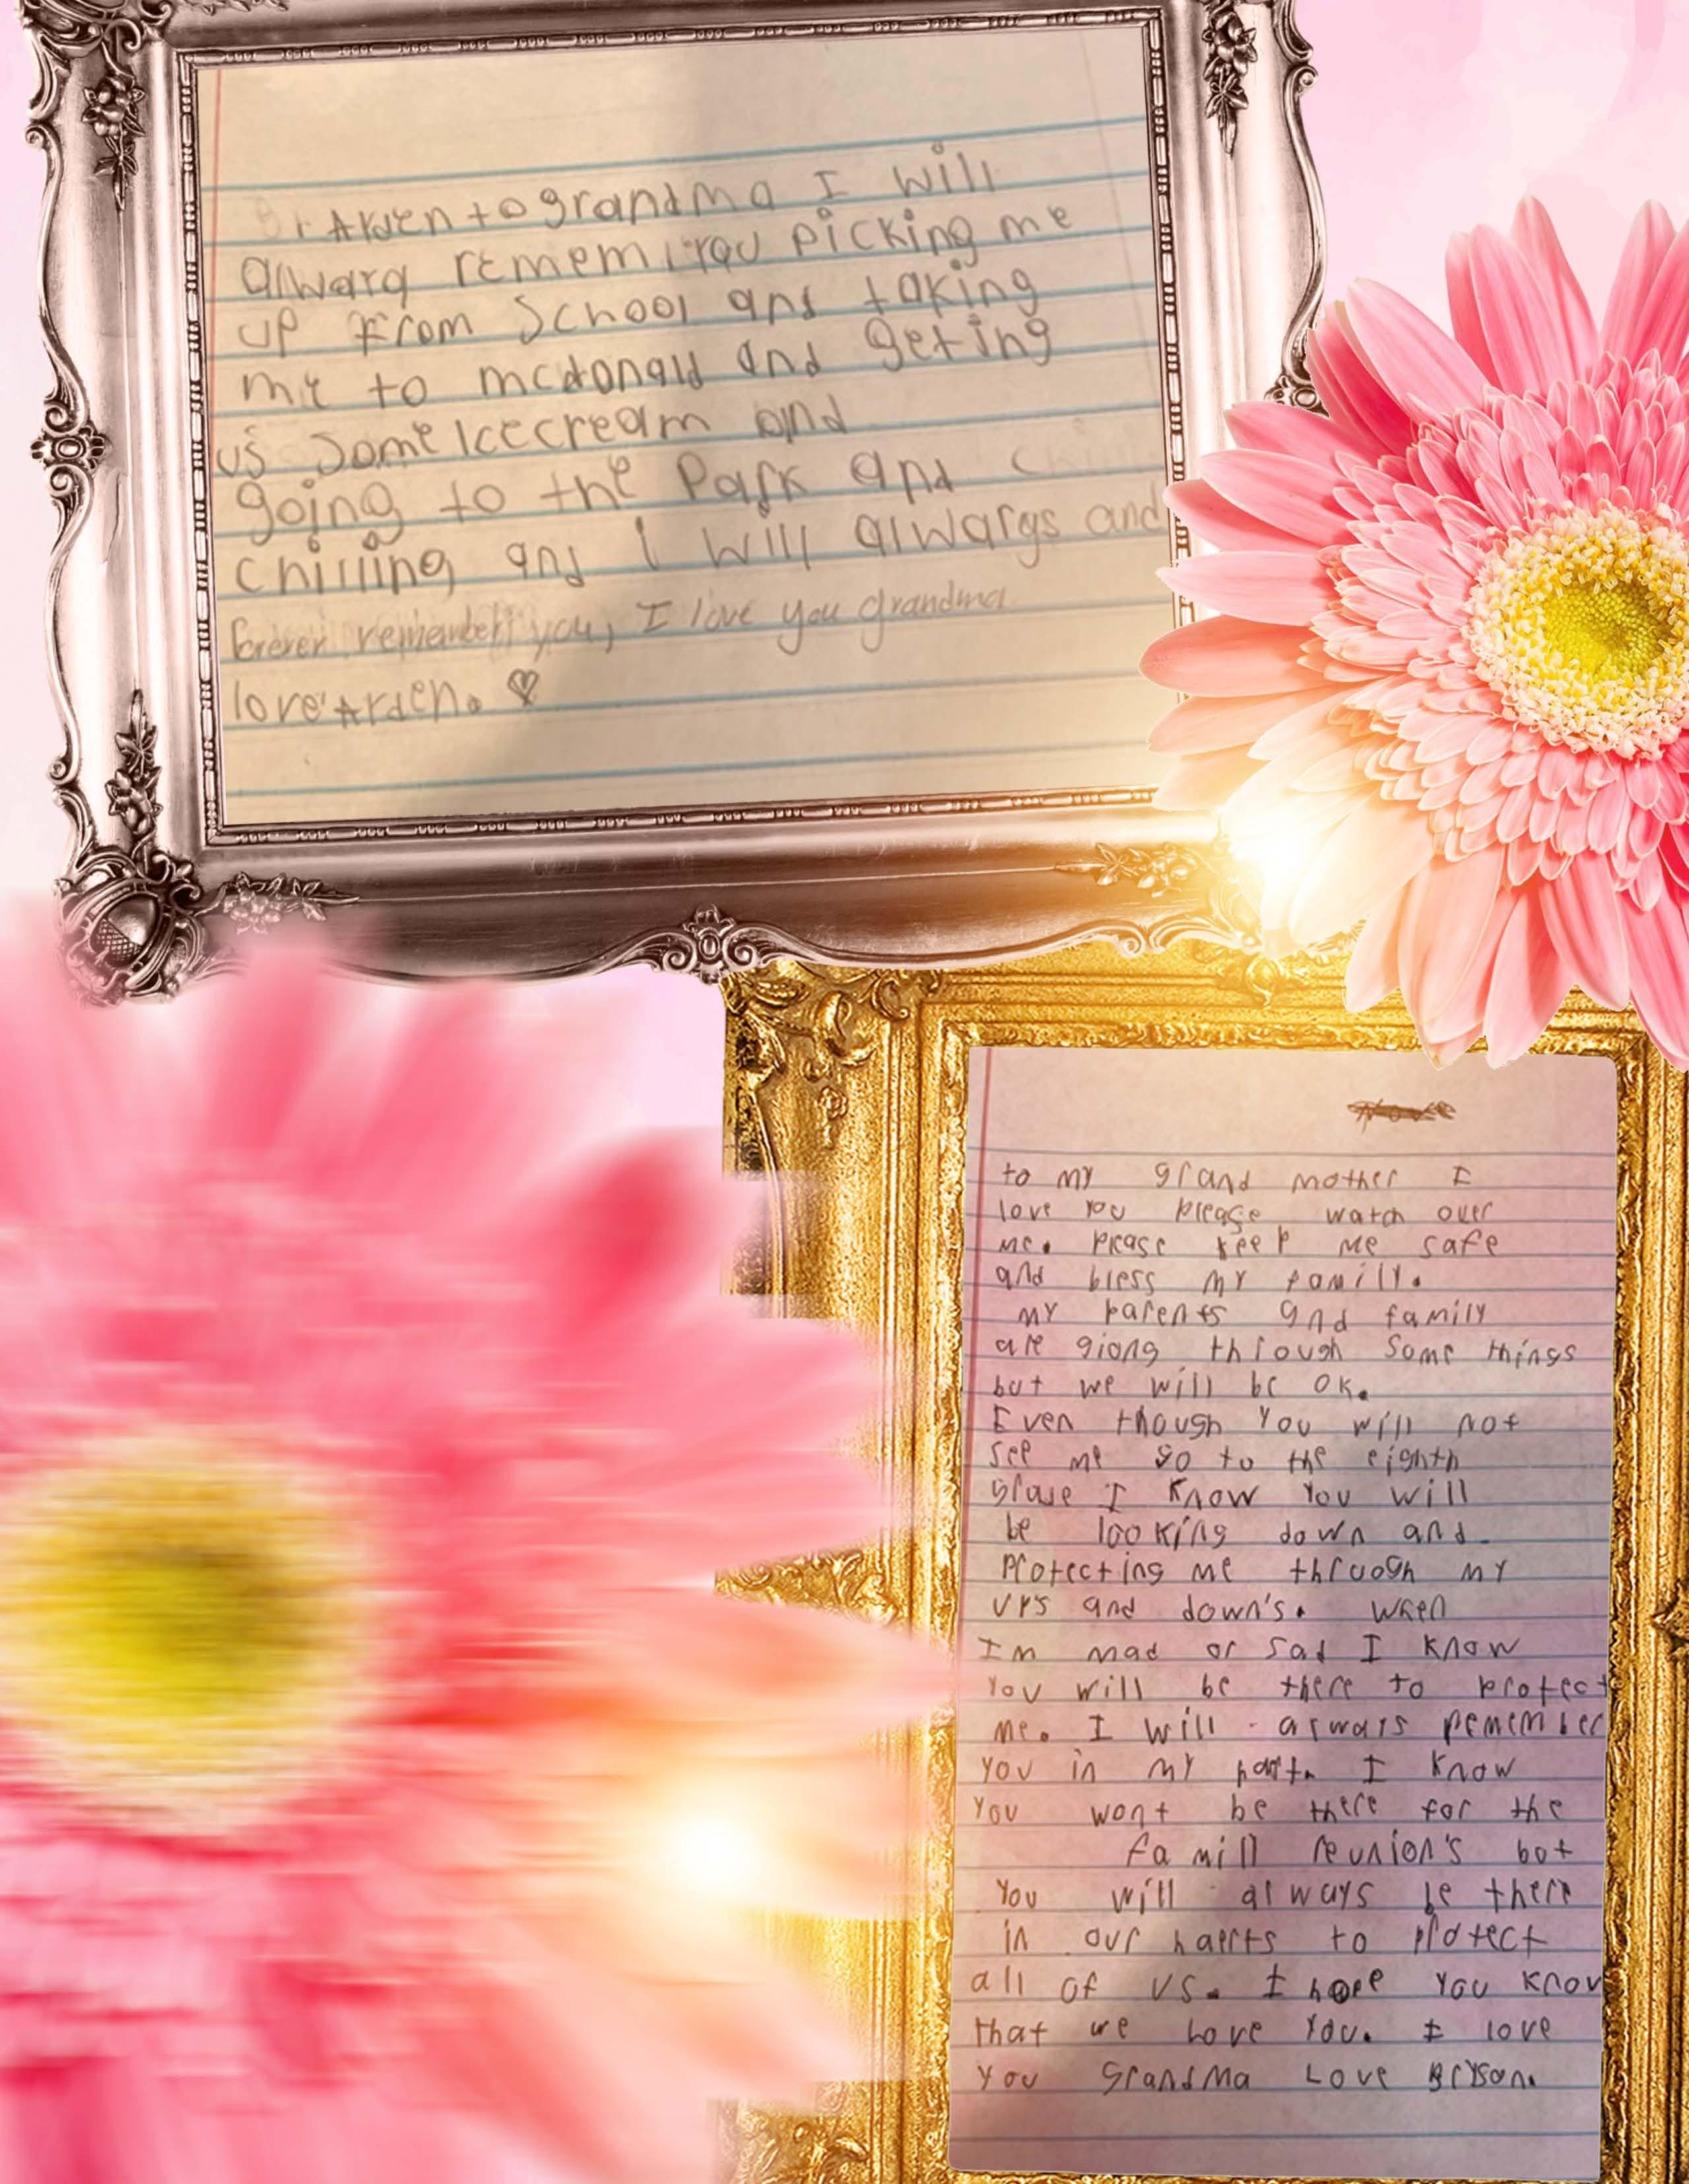 Arden to grandma I will
alwarg remem you picking me
up from School and taking
me to mcdonald and geting
us some Icecream and
going to the Park and
chilling and I will alwargs and
forever remember you, I love you grandma
love Arden. ♡
to my grand mother I
love you please watch over
me. please keep me safe
and bless my familly.
my parents and family
are giong through some things
but we will be ok.
Even though you will not
see me go to the eighth
grade I know you will
be looking down and
protecting me through my
ups and down's. when
Im mad or sad I know
you will be there to protect
me. I will always remember
you in my I know
you wont be there for the
famill reunion's but
you will always be there
in our haerts to protect
all of us. I hope you know
that we Love you. I love
you Grandma Love Bryson.